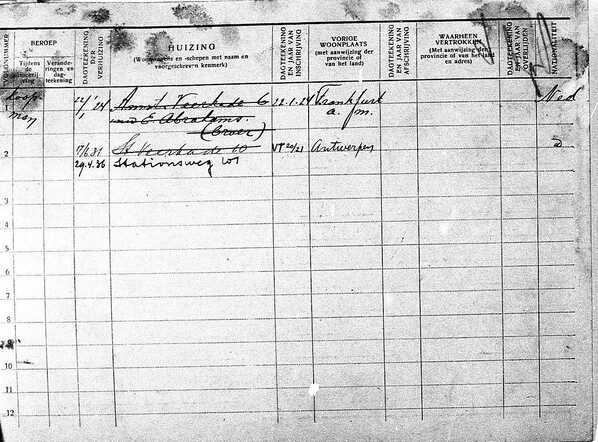 VOLGNUMMER
BEROEP
Tijdens
de
inschrij-
ving
Verande-
ringen en
dag-
teekening
DAGTEEKENING
DER
VERHUIZING
HUIZING
(Woonwagens en -schepen met naam en
voorgeschreven kenmerk)
DAGTEEKENING
EN JAAR VAN
INSCHRIJVING
VORIGE
WOONPLAATS
(met aanwijzing der
provincie of
van het land)
DAGTEEKENING
EN JAAR VAN
AFSCHRIJVING
WAARHEEN
VERTROKKEN
(Met aanwijzing der
provincie of van het land
en adres)
DAGTEEKENING
EN JAAR VAN
OVERLIJDEN
NATIONALITEIT
Koop
man
22/1 24
Amst. Veerkade 6
E. Abrahams
22-1-24
Frankfurt
a. m.
Ned
2
7/6.31
St Veerkade 10
Antwerpen
29.4.36
Stationsweg 101
3
4
5
6
7
8
10
11
12